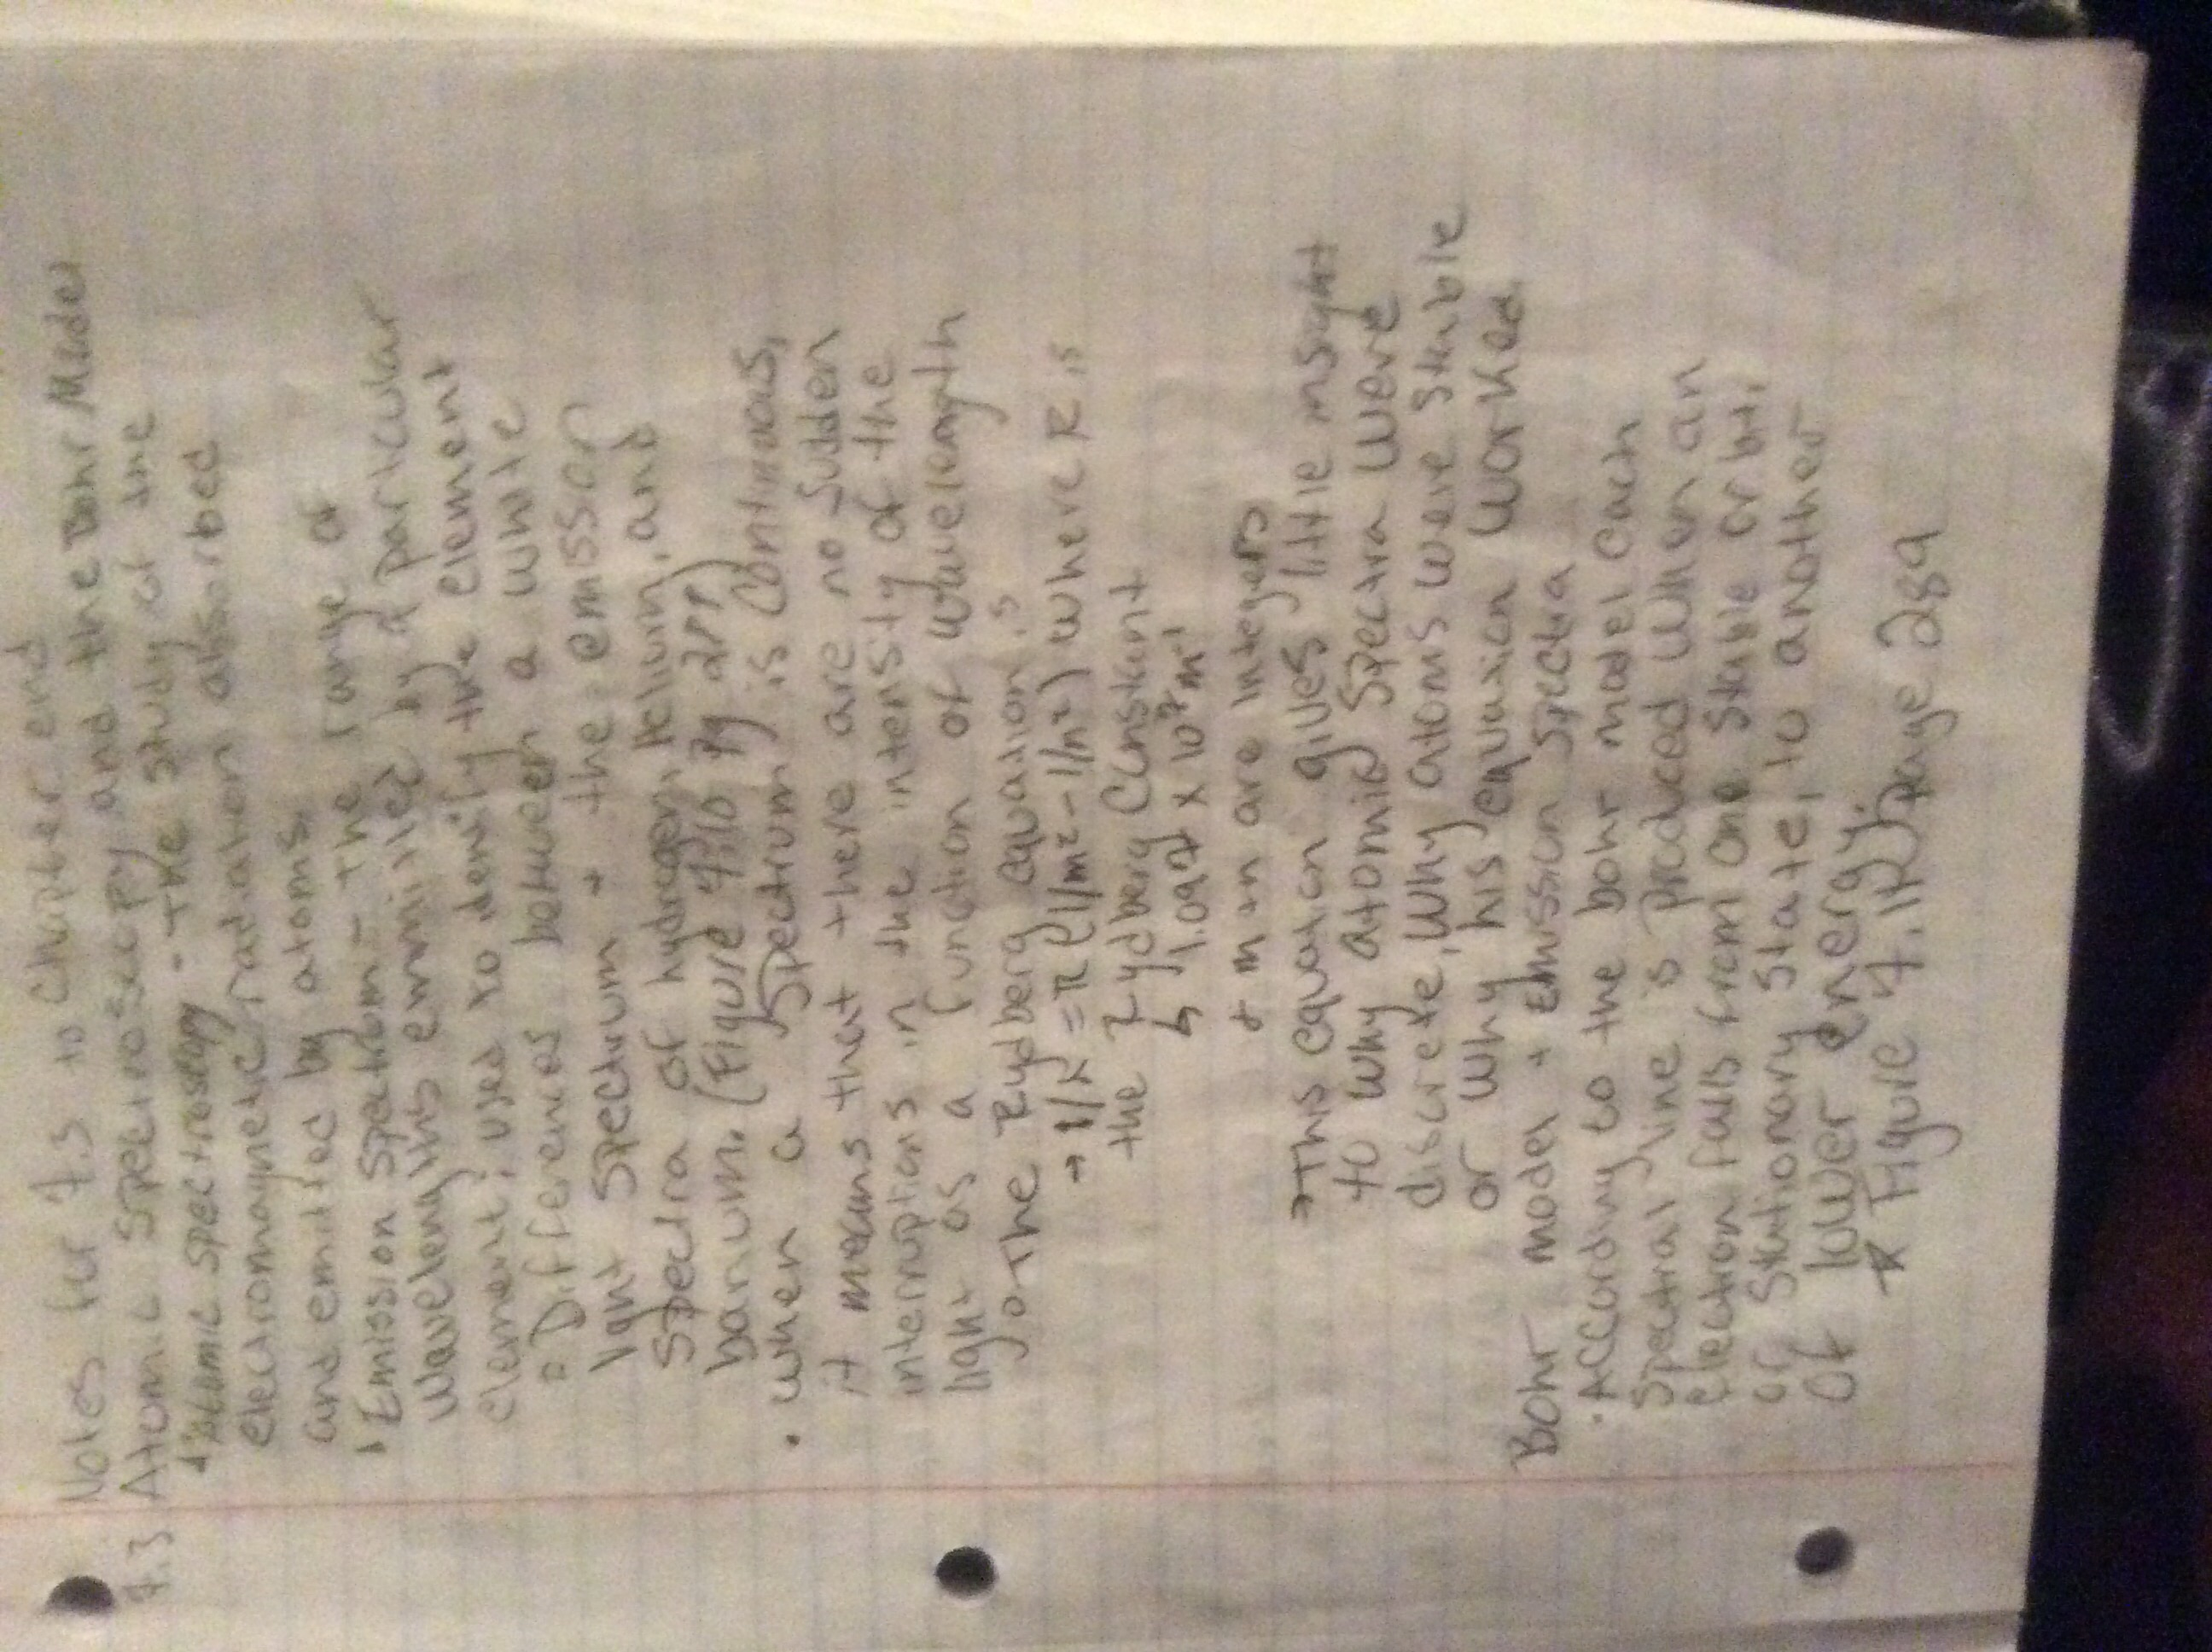 Notes for 7.3 to Chapter end
7.3 Atomic Spectroscopy and the Bohr Model
Atomic spectroscopy - the study of the
electromagnetic radiation absorbed
and emitted by atoms.
Emission spectrum - the range of
wavelengths emmitted by a particular
element; used to denify the element
Differences between a white
light spectrum + the emission
spectra of hydrogen, helium, and
barium. (Figure 7.10 Pg 287)
• when a spectrum is continuous,
it means that there are no sudden
interruptions in the intensity of the
light as a function of wavelength
The Rydberg equation is
→ 1/λ = R(1/m² - 1/n²) where R is
the Rydberg Constant
↳ 1.097 x 10⁷ m⁻¹
+ m + n are integers
→ This equation gives little insight
to why atomic spectra were
discrete, why atoms were stable
or why his equation worked.
Bohr model + Emission spectra
• According to the bohr model each
spectral line is produced when an
electron falls from one stable orbit,
or stationary state, to another
of lower energy.
* Figure 7.12 page 289